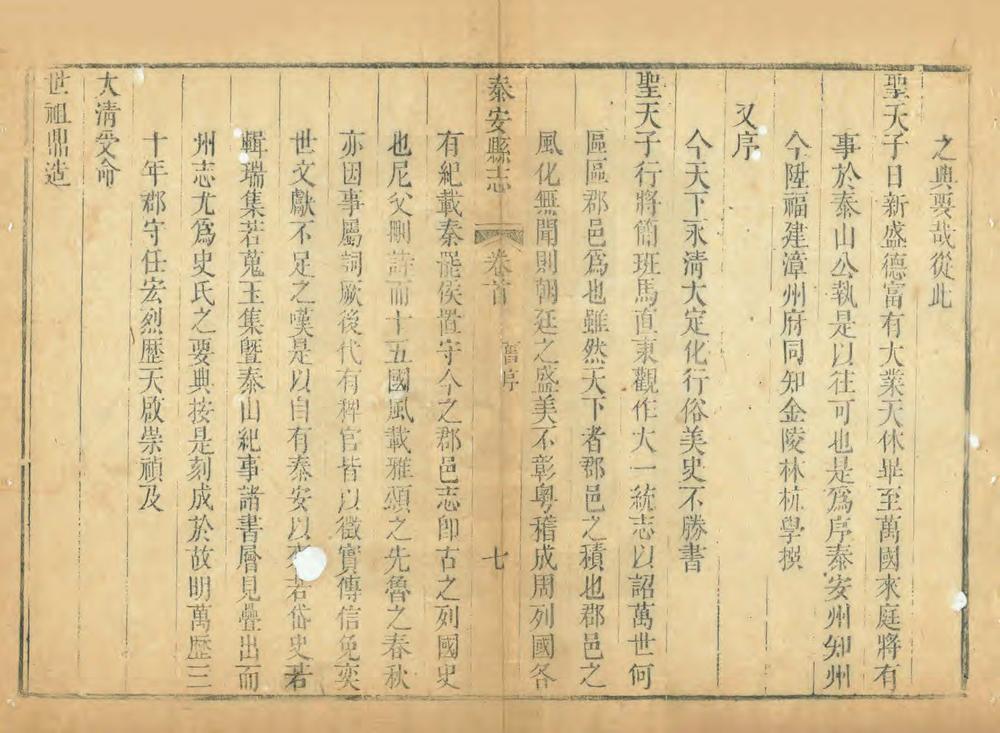 之典要哉從此
聖天子日新盛德富有大業天休畢至萬國來庭將有
事於泰山公執是以往可也是爲序泰安州知州
今陞福建漳州府同知金陵林杭學撰
又序
今天下永淸大定化行俗美史不勝書
聖天子行將簡班馬直東觀作大一統志以詔萬世何
區區郡邑爲也雖然天下者郡邑之積也郡邑之
風化無聞則朝廷之盛美不彰粤稽成周列國各
泰安縣志
卷首
舊序
七
有紀載秦罷侯置守今之郡邑志卽古之列國史
也尼父刪詩而十五國風載雅頌之先魯之春秋
亦因事屬詞厥後代有稗官皆以徵實傳信免奕
世文獻不足之嘆是以自有泰安以來若岱史若
輯瑞集若蒐玉集曁泰山紀事諸書層見疊出而
州志尤爲史氏之要典按是刻成於故明萬歷三
十年郡守任宏烈歷天啟崇禎及
大淸受命
世祖鼎造